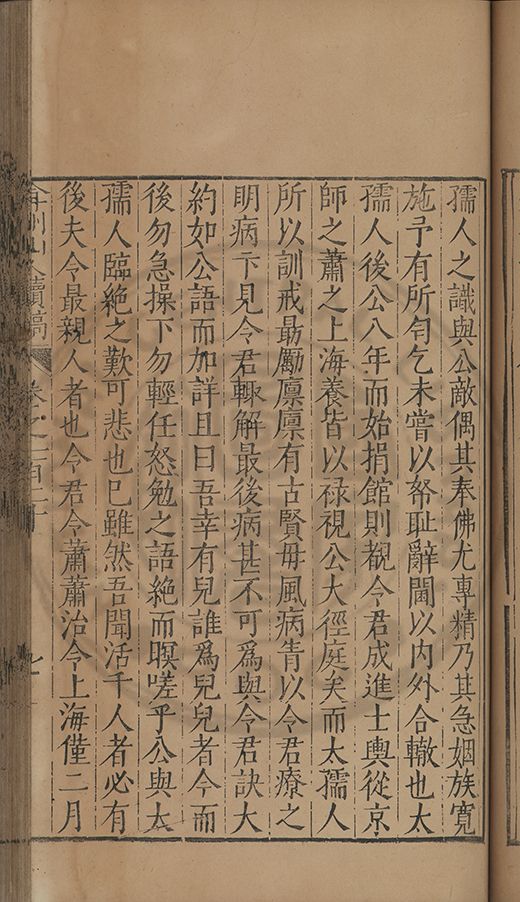 孺人之識與公敵偶其奉佛尤專精乃其急姻族寬
施予有所匄乞未嘗以帑耻辭閫以內外合轍也太
孺人後公八年而始捐館則覩令君成進士輿從京
師之蕭之上海養皆以禄視公大徑庭矣而太孺人
所以訓戒最勵廩廩有古賢母風病眚以令君療之
明病下見令君輙解最後病甚不可爲與令君訣大
約如公語而加詳且曰吾幸有兒誰爲兒兒者今而
後勿急操下勿輕任怒勉之語絶而瞑嗟乎公與太
孺人臨絶之歎可悲也已雖然吾聞活千人者必有
後夫令最親人者也令君令蕭蕭治令上海僅二月
弇州山人續稿 卷之一百二十 七